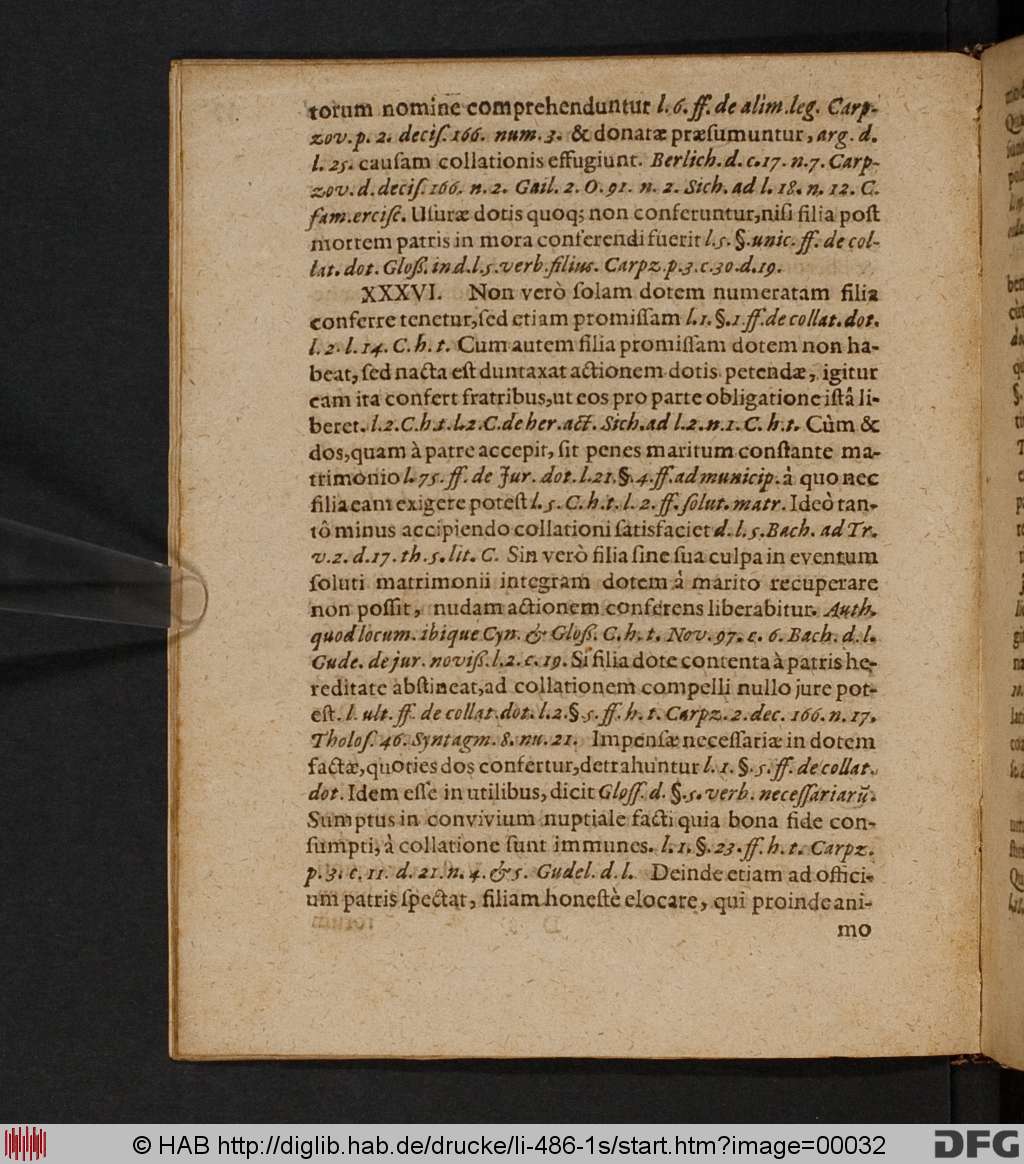 torum nomine comprehenduntur l. 6. ff. de alim. leg. Carp-
zov. p. 2. deciſ. 166. num. 3. & donatæ præſumuntur, arg. d.
l. 25. cauſam collationis effugiunt. Berlich. d. c. 17. n. 7. Carp-
zov. d. deciſ. 166. n. 2. Gail. 2. O. 91. n. 2. Sich. ad l. 18. n. 12. C.
fam. erciſc. Uſuræ dotis quoq; non conferuntur, niſi filia poſt
mortem patris in mora conferendi fuerit l. 5. §. unic. ff. de col-
lat. dot. Gloß. in d. l. 5. verb. filius. Carpz. p. 3. c. 30. d. 19.
XXXVI. Non verò ſolam dotem numeratam filia
conferre tenetur, ſed etiam promiſſam l. 1. §. 1 ff. de collat. dot.
l. 2. l. 14. C. h. t. Cum autem filia promiſſam dotem non ha-
beat, ſed nacta eſt duntaxat actionem dotis petendæ, igitur
eam ita confert fratribus, ut eos pro parte obligatione iſtâ li-
beret. l. 2. C. h. t. l. 2. C. de her. act. Sich. ad l. 2. n. 1. C. h. t. Cùm &
dos, quam à patre accepit, ſit penes maritum conſtante ma-
trimonio l. 75. ff. de Jur. dot. l. 21. §. 4. ff. ad municip. à quo nec
filia eam exigere poteſt l. 5. C. h. t. l. 2. ff. ſolut. matr. Ideò tan-
tô minus accipiendo collationi ſatisfaciet d. l. 5. Bach. ad Tr.
v. 2. d. 17. th. 5. lit. C. Sin verò filia ſine ſua culpa in eventum
ſoluti matrimonii integram dotem à marito recuperare
non poſſit, nudam actionem conferens liberabitur. Auth.
quod locum. ibique Cyn. & Gloß. C. h. t. Nov. 97. c. 6. Bach. d. l.
Gude. de jur. noviß. l. 2. c. 19. Si filia dote contenta à patris he-
reditate abſtineat, ad collationem compelli nullo jure pot-
eſt. l. ult. ff. de collat. dot. l. 2. §. 5. ff. h. t. Carpz. 2. dec. 166. n. 17.
Tholoſ. 46. Syntagm. 8. nu. 21. Impenſæ neceſſariæ in dotem
factæ, quoties dos confertur, detrahuntur l. 1. §. 5. ff. de collat.
dot. Idem eſſe in utilibus, dicit Gloſſ. d. §. 5. verb. neceſſariarũ.
Sumptus in convivium nuptiale facti quia bona fide con-
ſumpti, à collatione ſunt immunes. l. 1. §. 23. ff. h. t. Carpz.
p. 3. c. 11. d. 21. n. 4. & 5. Gudel. d. l. Deinde etiam ad offici-
um patris ſpectat, filiam honeſtè elocare, qui proinde ani-
mo
© HAB http://diglib.hab.de/drucke/li-486-1s/start.htm?image=00032
DFG